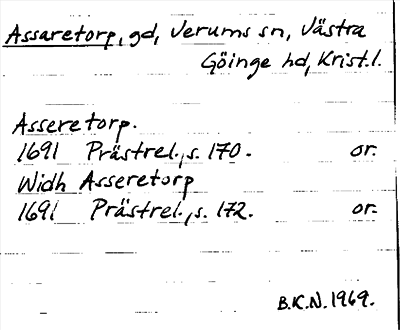 Assaretorp, gd, Verums sn, Västra
Göinge hd, Krist.l.
Asseretorp.
1691 Prästrel., s. 170. or.
Widh Asseretorp
1691 Prästrel., s. 172. or.
B.K.N. 1969.